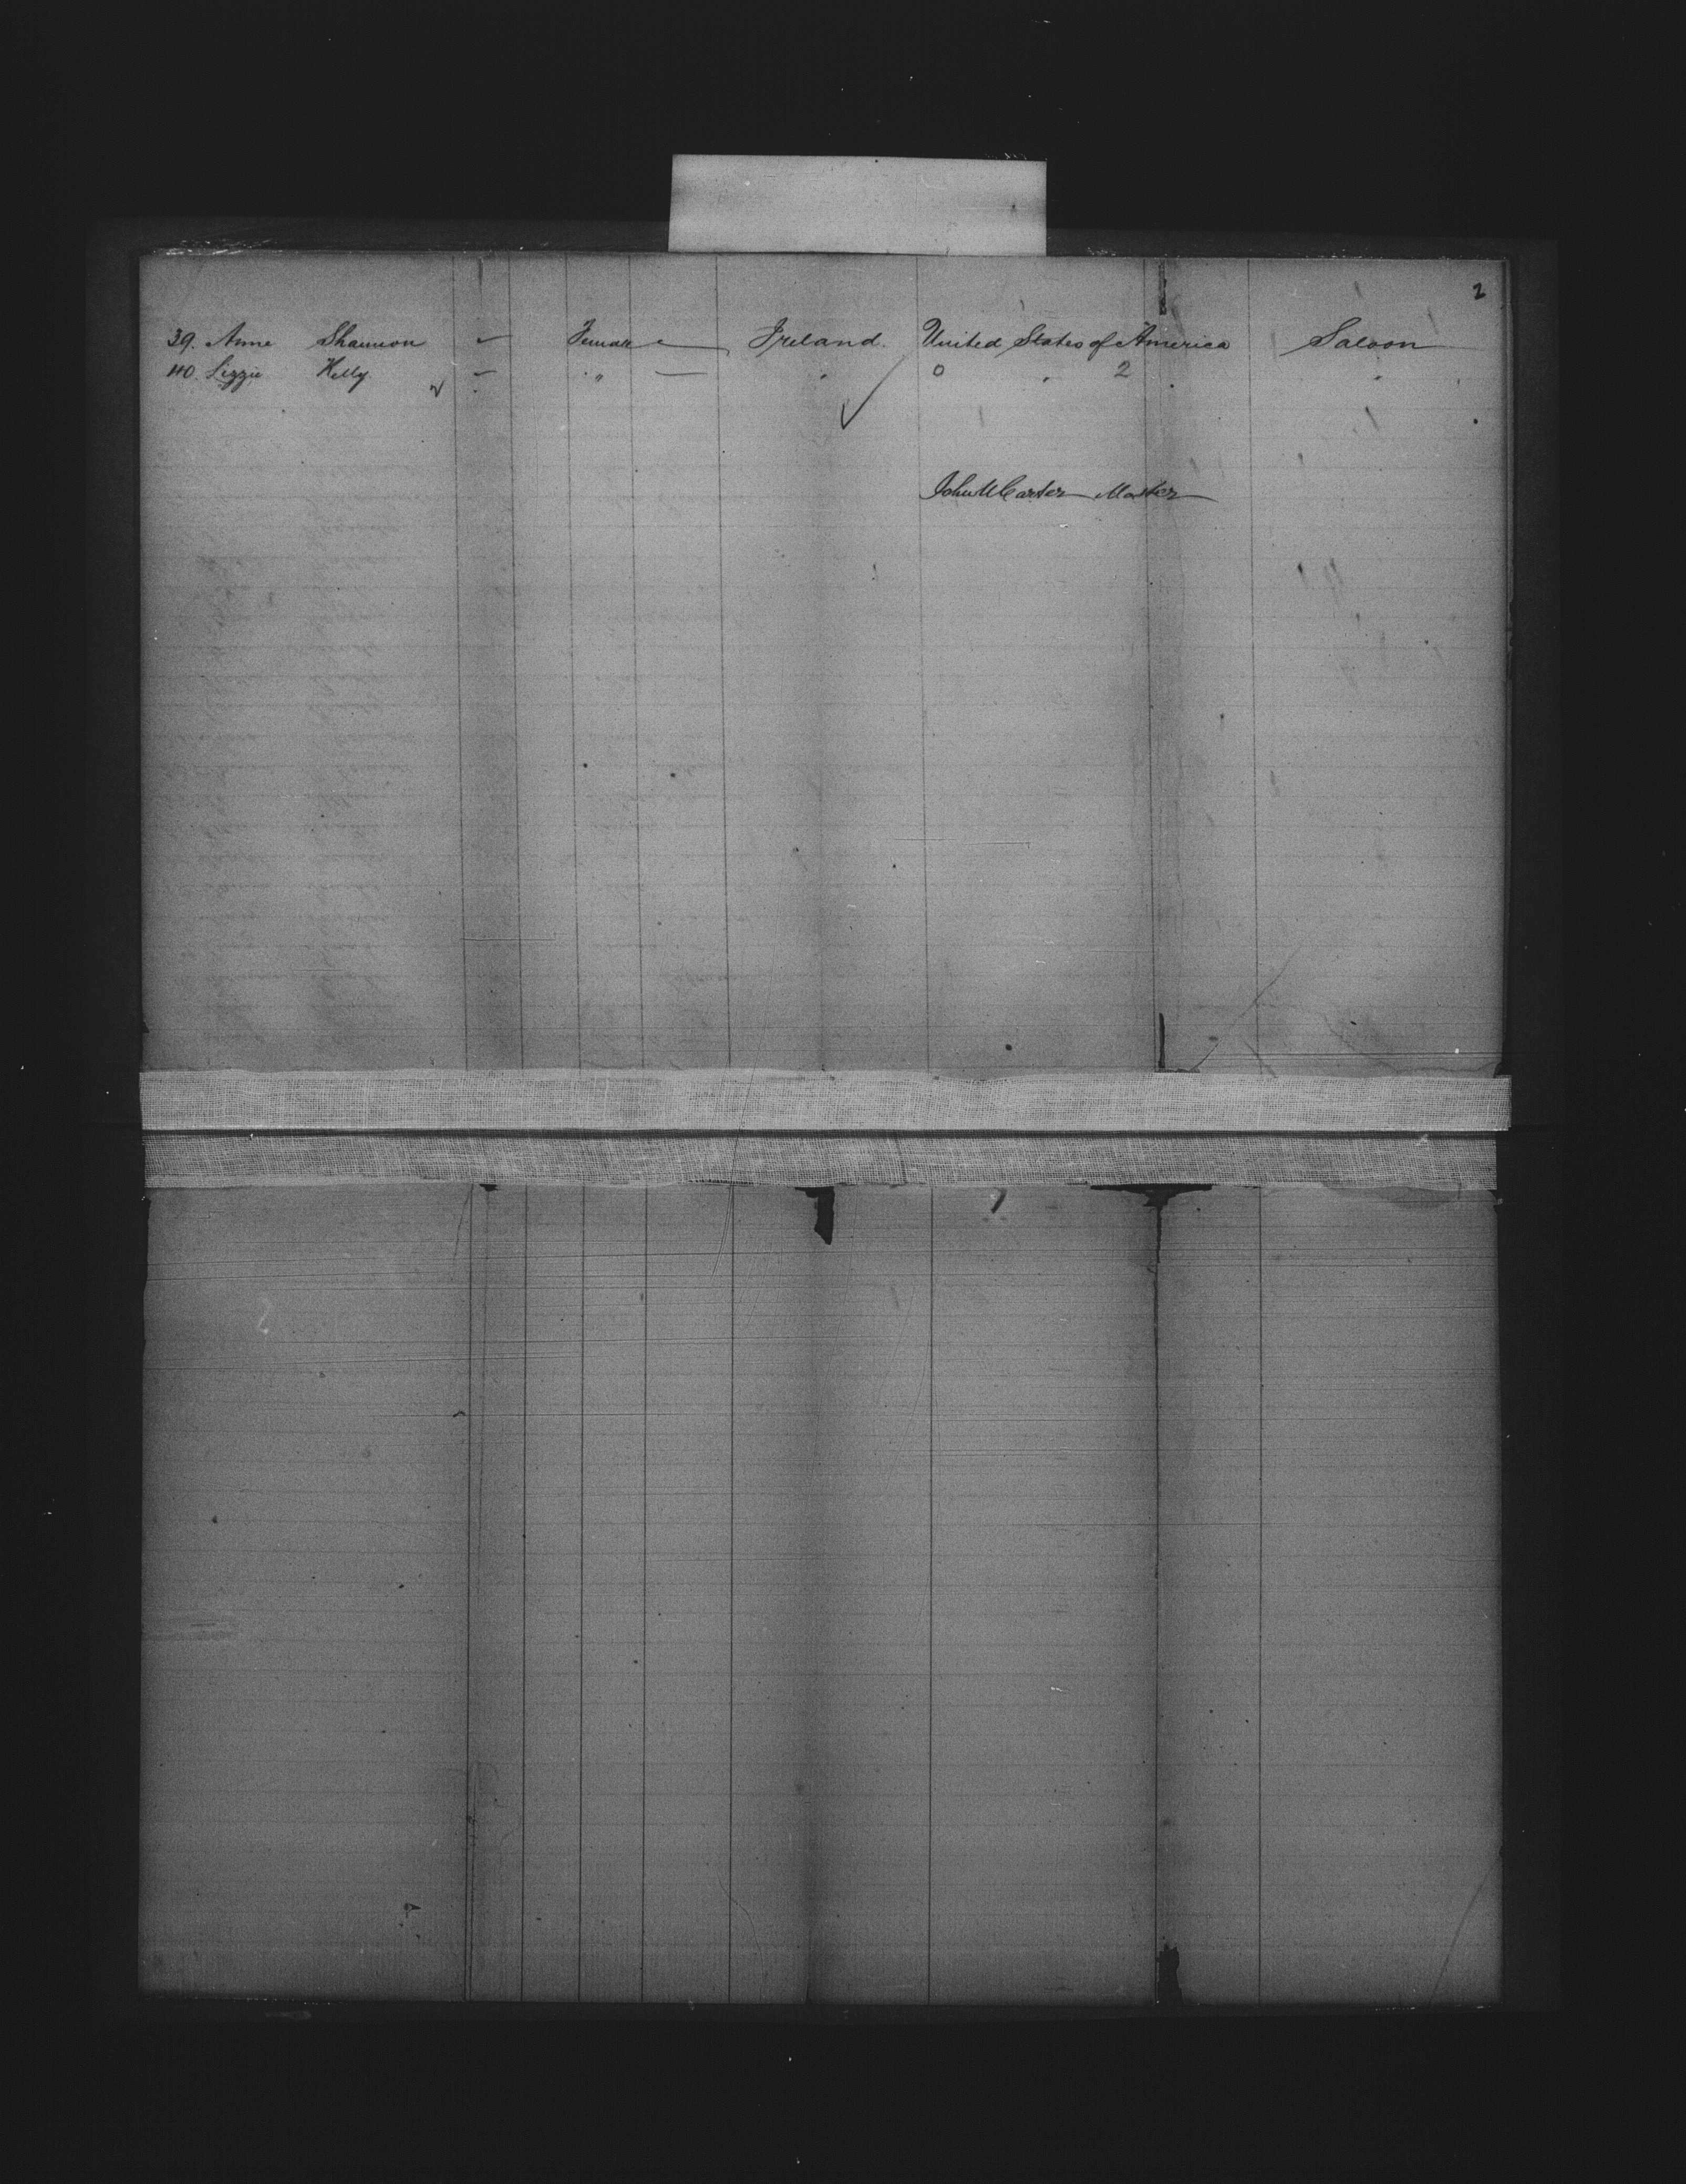 2
39. Anne Shannon - Female - Ireland. United States of America Saloon
40. Lizzie Kelly - " - " 0 " 2 " "
John W Carter Master